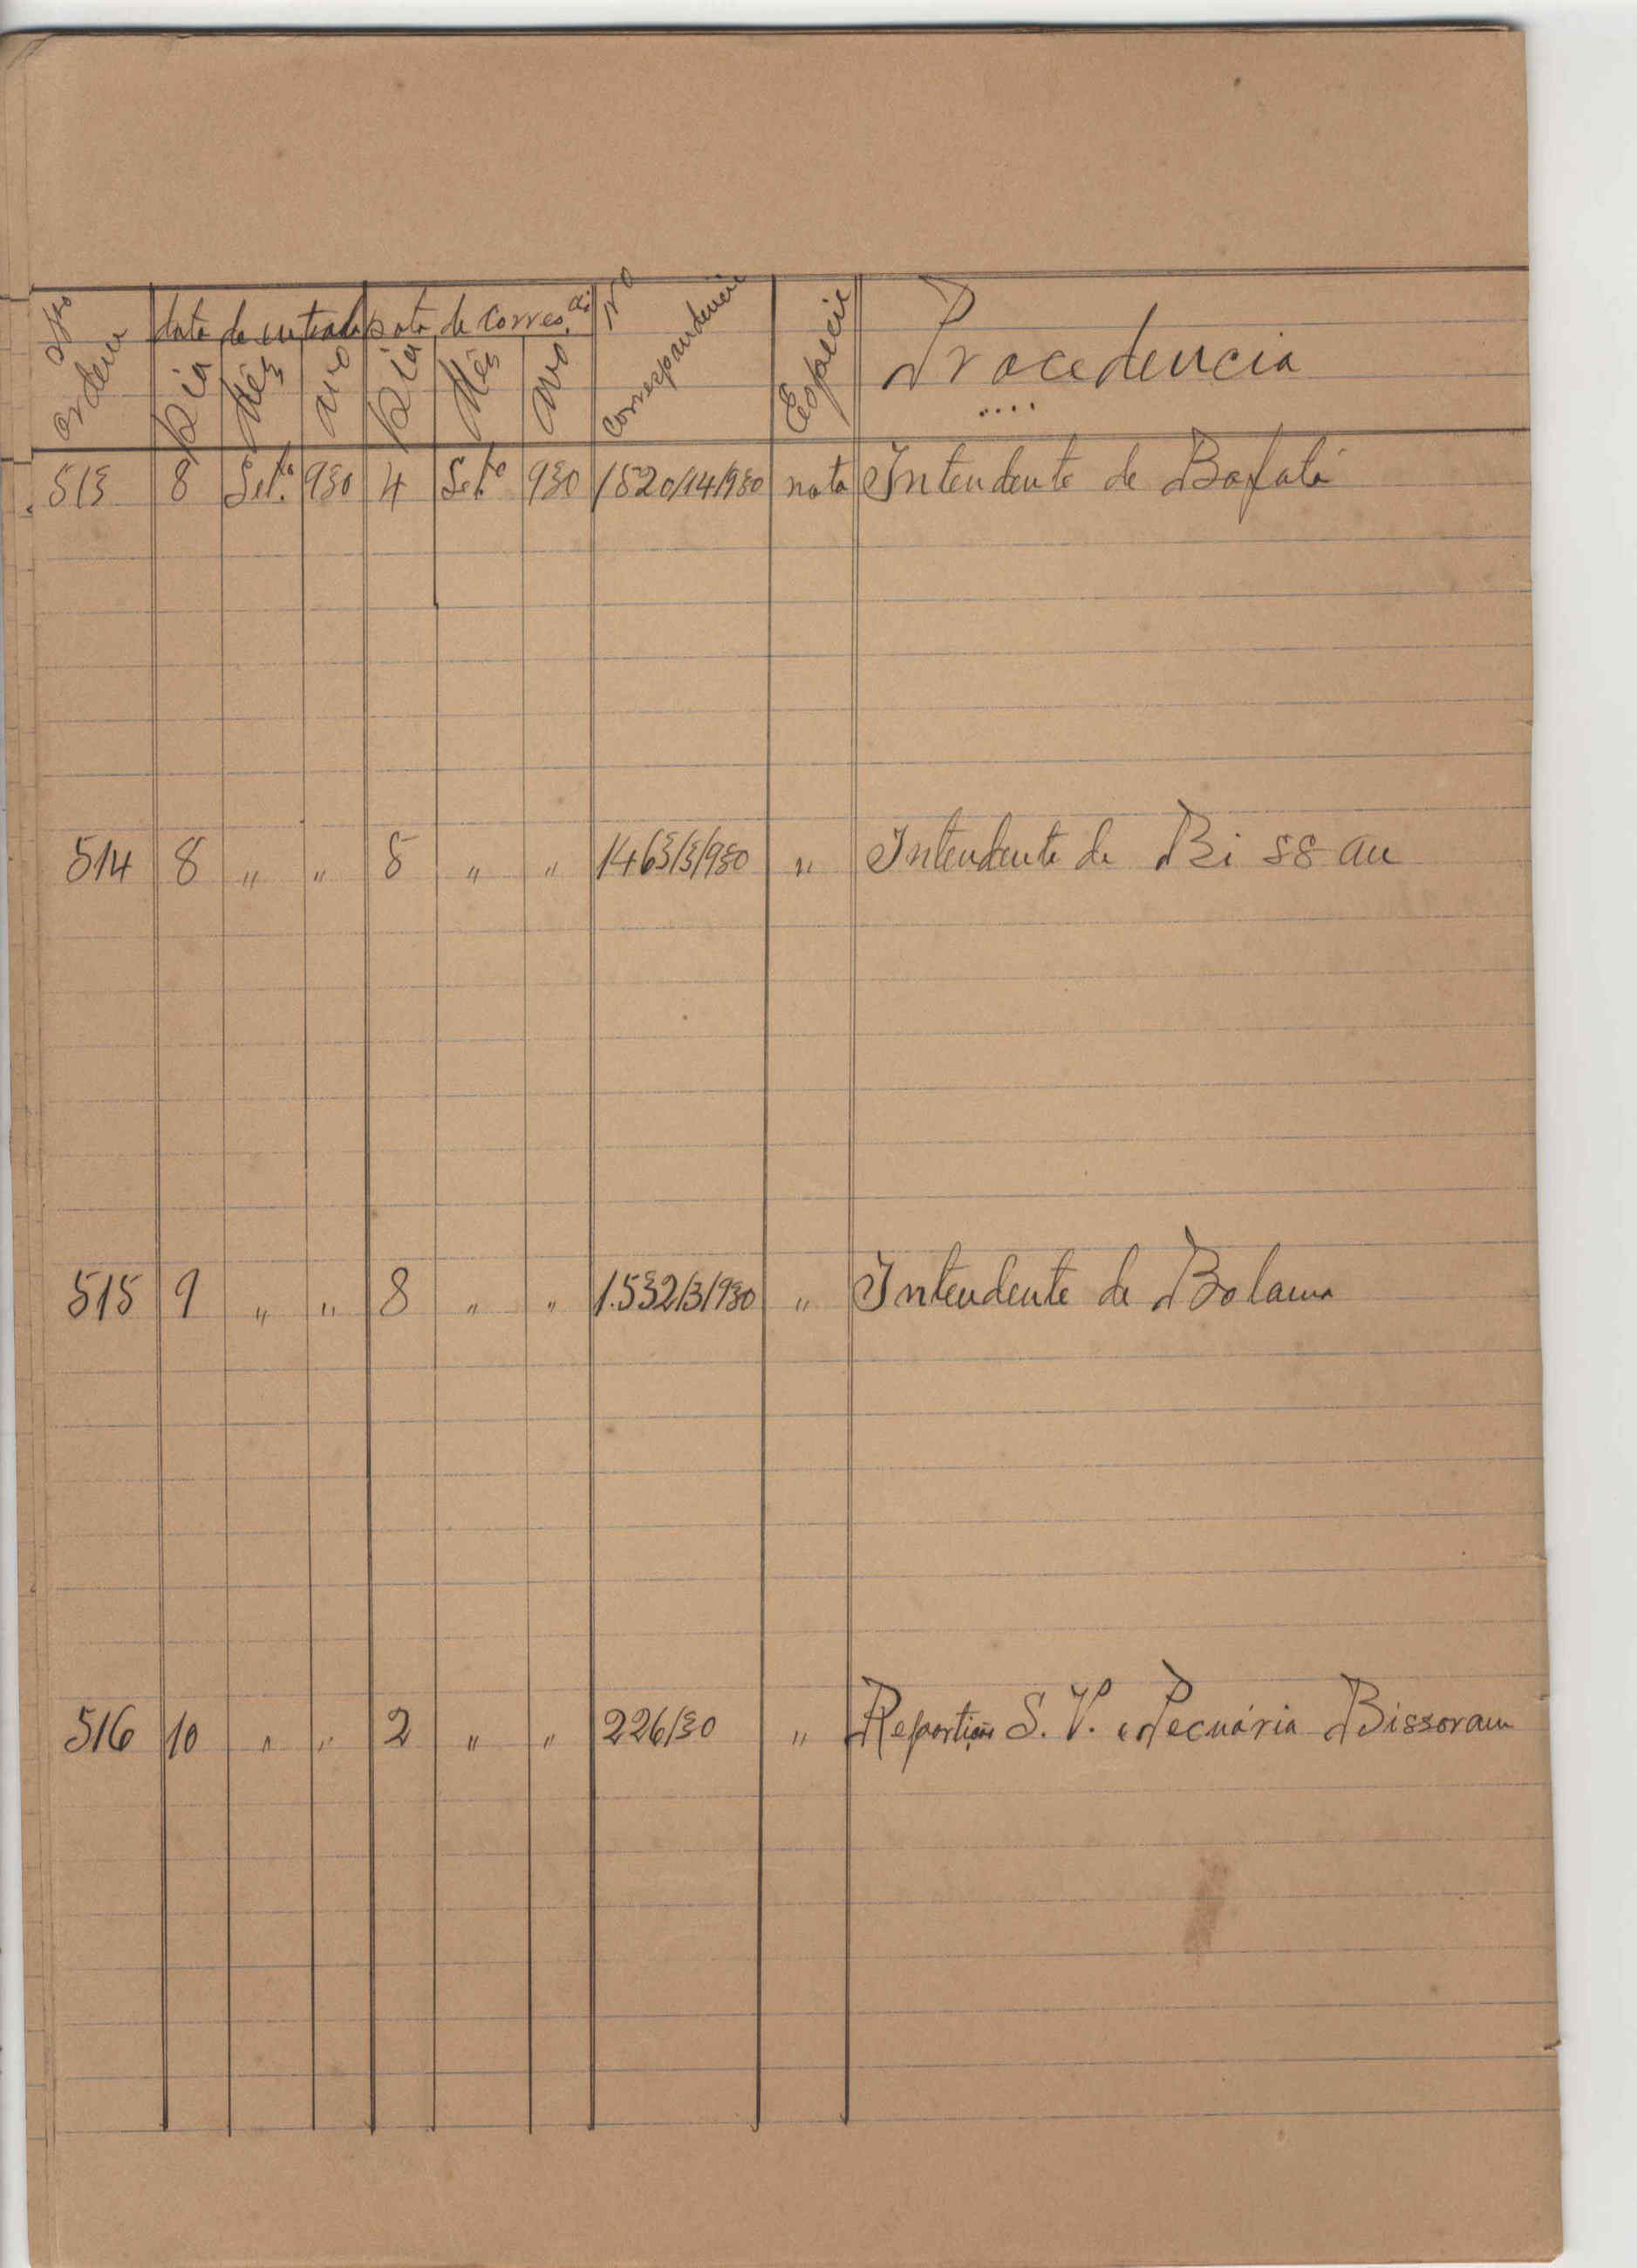 Nº ordem | data de entrada | Data de Corres.ci | Nº Correspondencia | Especie | Procedencia
Dia | Mês | Ano | Dia | Mês | Ano
513 | 8 | Set.º | 930 | 4 | Set.º | 930 | 1520/14/930 | nota | Intendente de Bafatá
514 | 8 | " | " | 5 | " | " | 1463/3/930 | " | Intendente de Bissau
515 | 9 | " | " | 8 | " | " | 1.532/3/930 | " | Intendente de Bolama
516 | 10 | " | " | 2 | " | " | 226/30 | " | Repartição S. V. Pecuária Bissoram